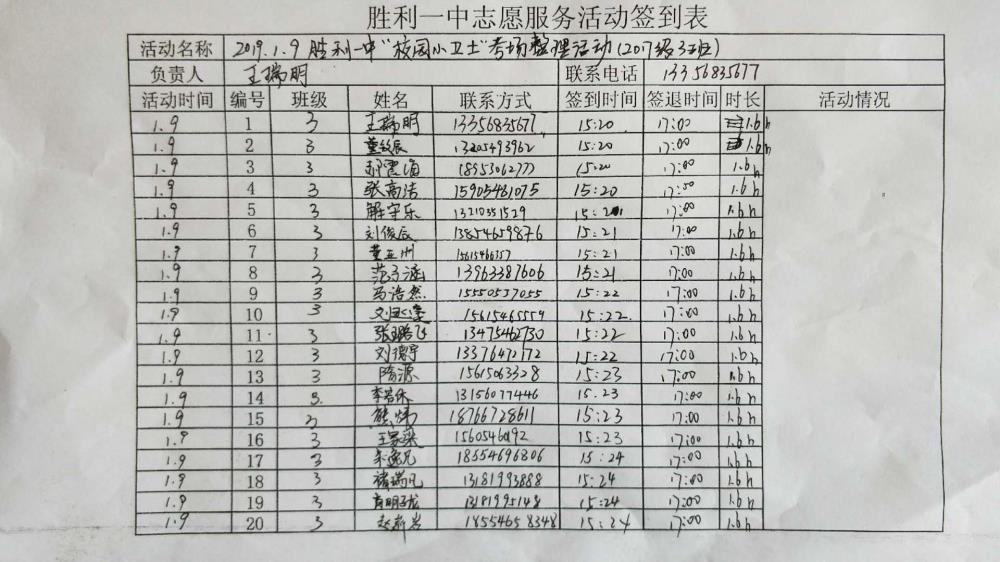 胜利一中志愿服务活动签到表
活动名称 2019.1.9 胜利一中"校园小卫士"考场整理活动(2017级3班)
负责人 王瑞明 联系电话 13356835677
活动时间 编号 班级 姓名 联系方式 签到时间 签退时间 时长 活动情况
1.9 1 3 王瑞明 13356835677 15:20 17:00 1.6h
1.9 2 3 13205493962 15:20 17:00 1.6h
1.9 3 3 18953062777 15:20 17:00 1.6h
1.9 4 3 张高洁 15905481075 15:20 17:00 1.6h
1.9 5 3 解守乐 13210351529 15:21 17:00 1.6h
1.9 6 3 刘俊辰 13854659876 15:21 17:00 1.6h
1.9 7 3 15:21 17:00 1.6h
1.9 8 3 范子涵 13963387606 15:21 17:00 1.6h
1.9 9 3 马浩然 15550537055 15:22 17:00 1.6h
1.9 10 3 15615465559 15:22 17:00 1.6h
1.9 11 3 13475462730 15:22 17:00 1.6h
1.9 12 3 刘德宇 13376472172 15:22 17:00 1.6h
1.9 13 3 隋源 15615063328 15:23 17:00 1.6h
1.9 14 3 13156077446 15:23 17:00 1.6h
1.9 15 3 熊炜 18766728611 15:23 17:00 1.6h
1.9 16 3 15:23 17:00 1.6h
1.9 17 3 18554696806 15:24 17:00 1.6h
1.9 18 3 褚瑞凡 13181993888 15:24 17:00 1.6h
1.9 19 3 13181995148 15:24 17:00 1.6h
1.9 20 3 赵新岩 18554658348 15:24 17:00 1.6h